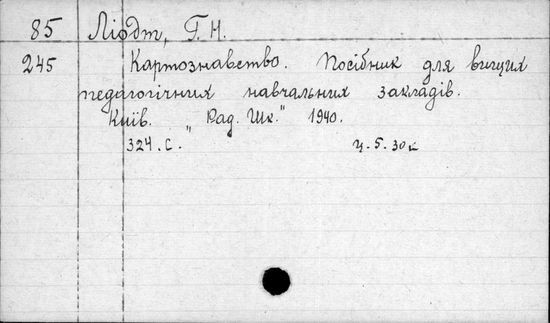 85 Ліодт, Г. Н.
245 Картознавство. Посібник для вищих
педагогічних навчальних закладів.
Київ. "Рад. Шк." 1940.
324. с. ц. 5. 30 к